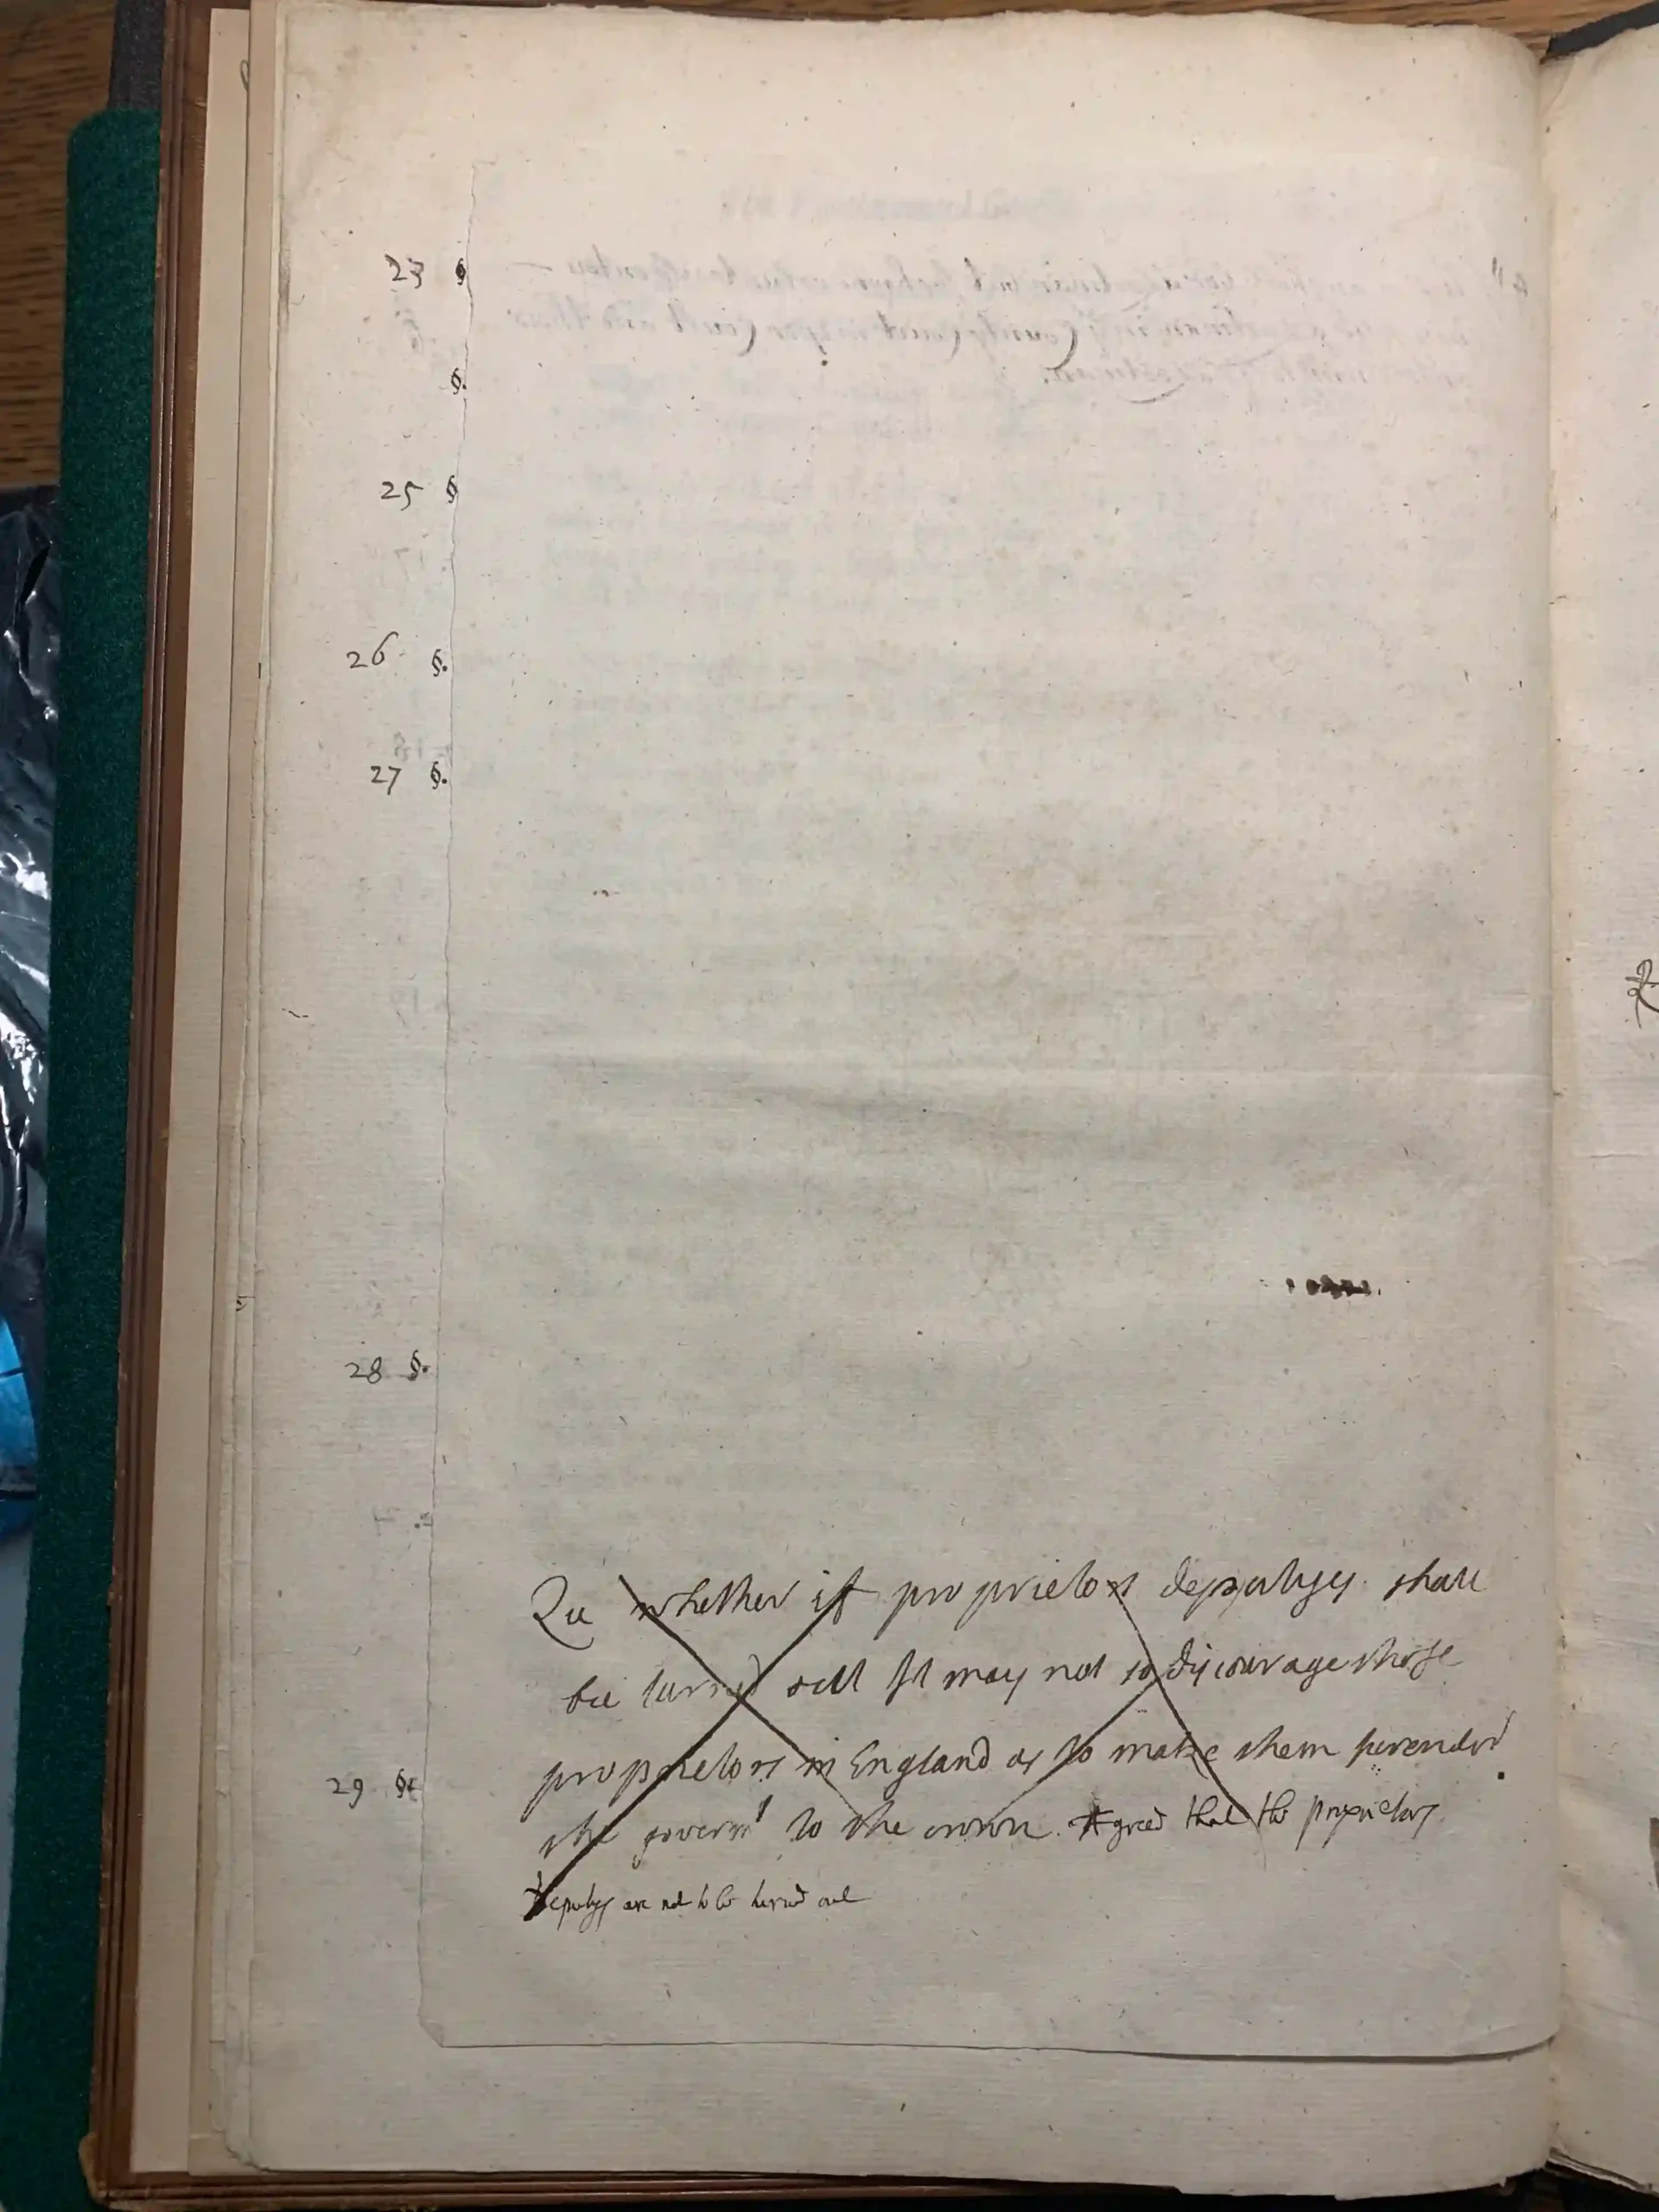 23 §
§.
25 §
26 §.
27 §.
28 §.
Qu whether if proprietors deputys shall
be turned out It may not so discourage those
proprietors in England as to make them surender
29 §
the governt to the crown. Agreed that the proprietors
deputys are not to be turned out